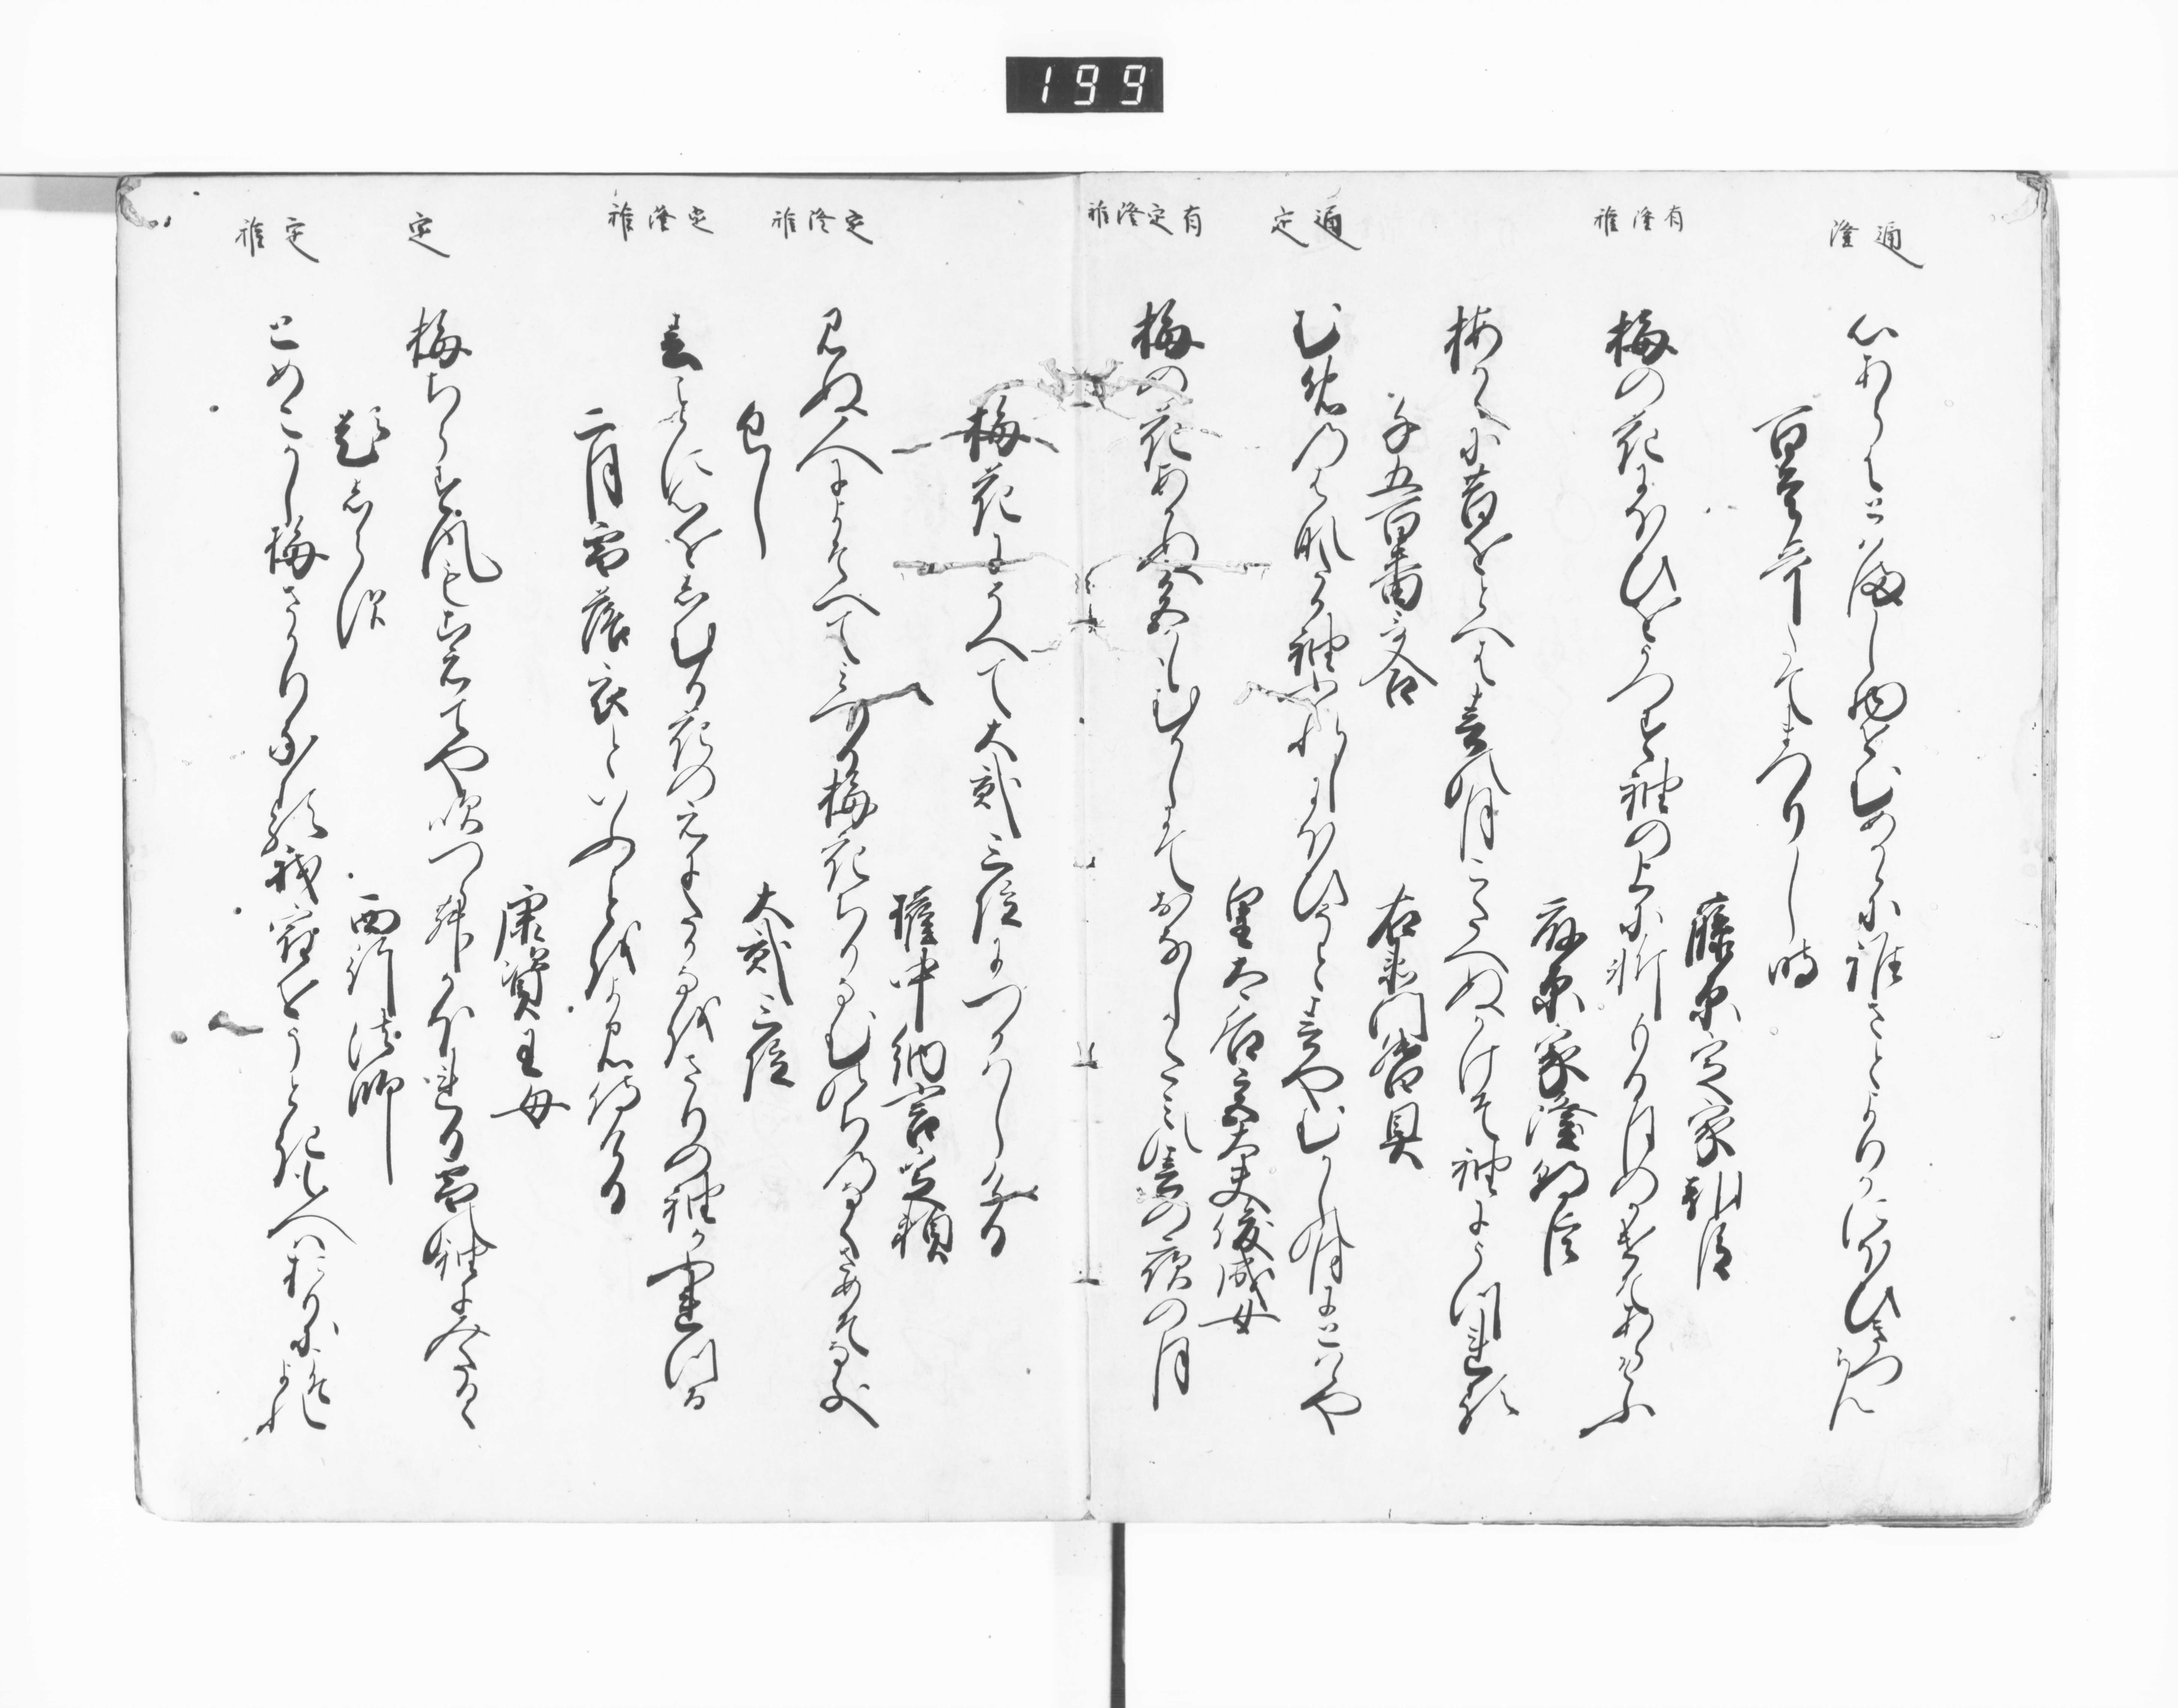 199
通 隆
心あらはとはまし物をむめかかに誰さとよりかにほひきつらん
百首哥たてまつりし時
藤原定家朝臣
有 隆 雅
梅の花にほひをうつす袖の上に軒もる月のかけそあらそふ
藤原家隆朝臣
梅かゝに昔をとへは春の月こたへぬかけそ袖にうつれる
千五百番哥合
右衛門督通具
通 定
むめの花たか袖ふれしにほひそと春やむかしの月にとはゝや
皇太后宮大夫俊成女
有 定 隆 雅
梅の花あかぬ色香もむかしにておなしかたみの春の夜の月
梅花にそへて大弐三位につかはしける
権中納言定頼
定 隆 雅
見ぬ人によそへてみつる梅花ちりなむのちのなくさめそなき
返し
大弐三位
定 隆 雅
春ことに心をしむる花の元にたかなをさりの袖かふれつる
二月雪落衣といふことをよみ侍ける
康資王母
定
梅ちらす風もこえてや吹つらむかほれる雪の袖にみたるゝ
題しらす
西行法師
定 雅
とめこかし梅さかりなる我宿をうときも人はおりにこそよれ